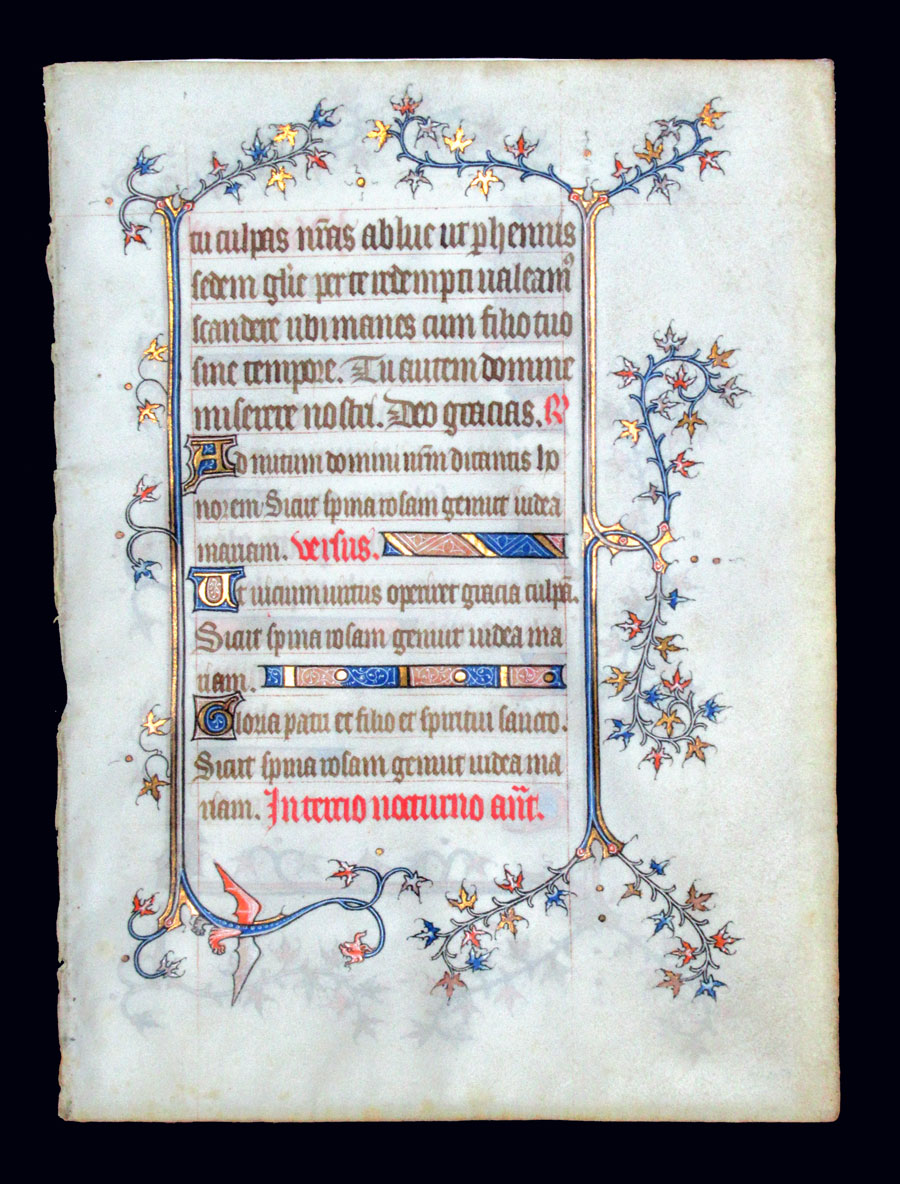 tu culpas nr̄as ablue ut ꝑhennis
sedem gl̄ie per te redempti ualeamꝰ
scandere ubi manes cum filio tuo
sine tempore. Tu autem domine
miserere nostri. Deo gracias. ℟
Ad nutum domini nr̄m ditantis ho
norem Sicut spina rosam genuit iudea
mariam. versus.
Ut uicium uirtus operiret gracia culpā.
Sicut spina rosam genuit iudea ma
riam.
Gloria patri et filio et spiritui sancto.
Sicut spina rosam genuit iudea ma
riam. In tercio nocturno an̄t.